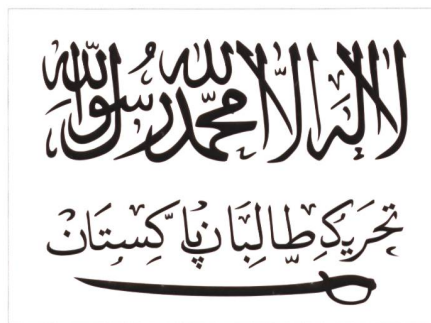 لا إله إلا الله محمد رسول الله
تحریکِ طَالِبَان پاکِستَان